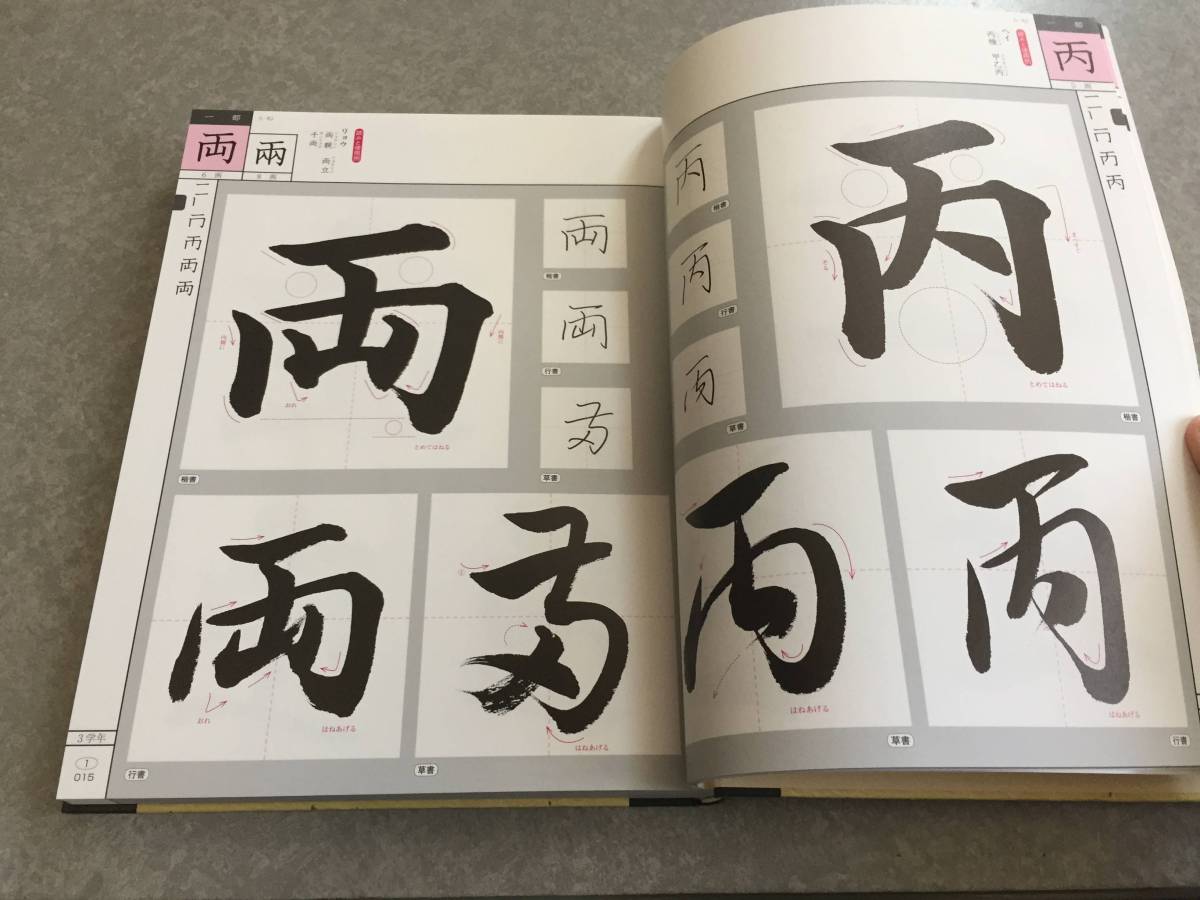 一部
丙
5画
一
丆
丙
丙
ヘイ
丙種 甲乙丙
読みと使用例
丙
楷書
丙
行書
丙
草書
丙
とめてはねる
楷書
丙
はねあげる
行書
丙
はねあげる
草書
一部
両
6画
兩
8画
両
両
両
リョウ
両親 両立
千両
読みと使用例
両
内側に
内側に
おれ
とめてはねる
楷書
両
楷書
両
行書
両
草書
両
おれ
はねあげる
行書
両
はねあげる
草書
3学年
1
015